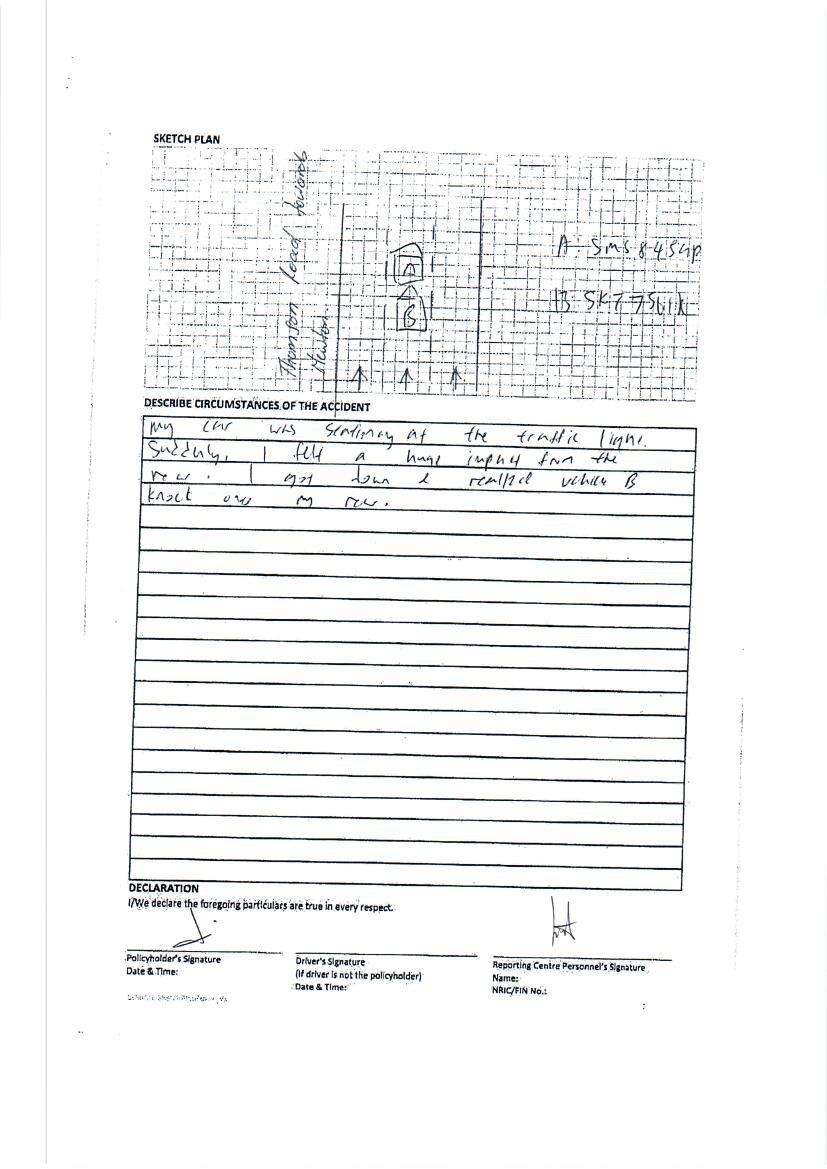 SKETCH PLAN
Thomson Road towards
Newton
A
B
A SMS 8454P
B
DESCRIBE CIRCUMSTANCES OF THE ACCIDENT
My car was stationary at the traffic light.
Suddenly, I felt a huge impact from the
rear. I got down & realized vehicle B
knock onto my rear.
DECLARATION
I/We declare the foregoing particulars are true in every respect.
Policyholder's Signature
Date & Time:
Driver's Signature
(If driver is not the policyholder)
Date & Time:
Reporting Centre Personnel's Signature
Name:
NRIC/FIN No.: